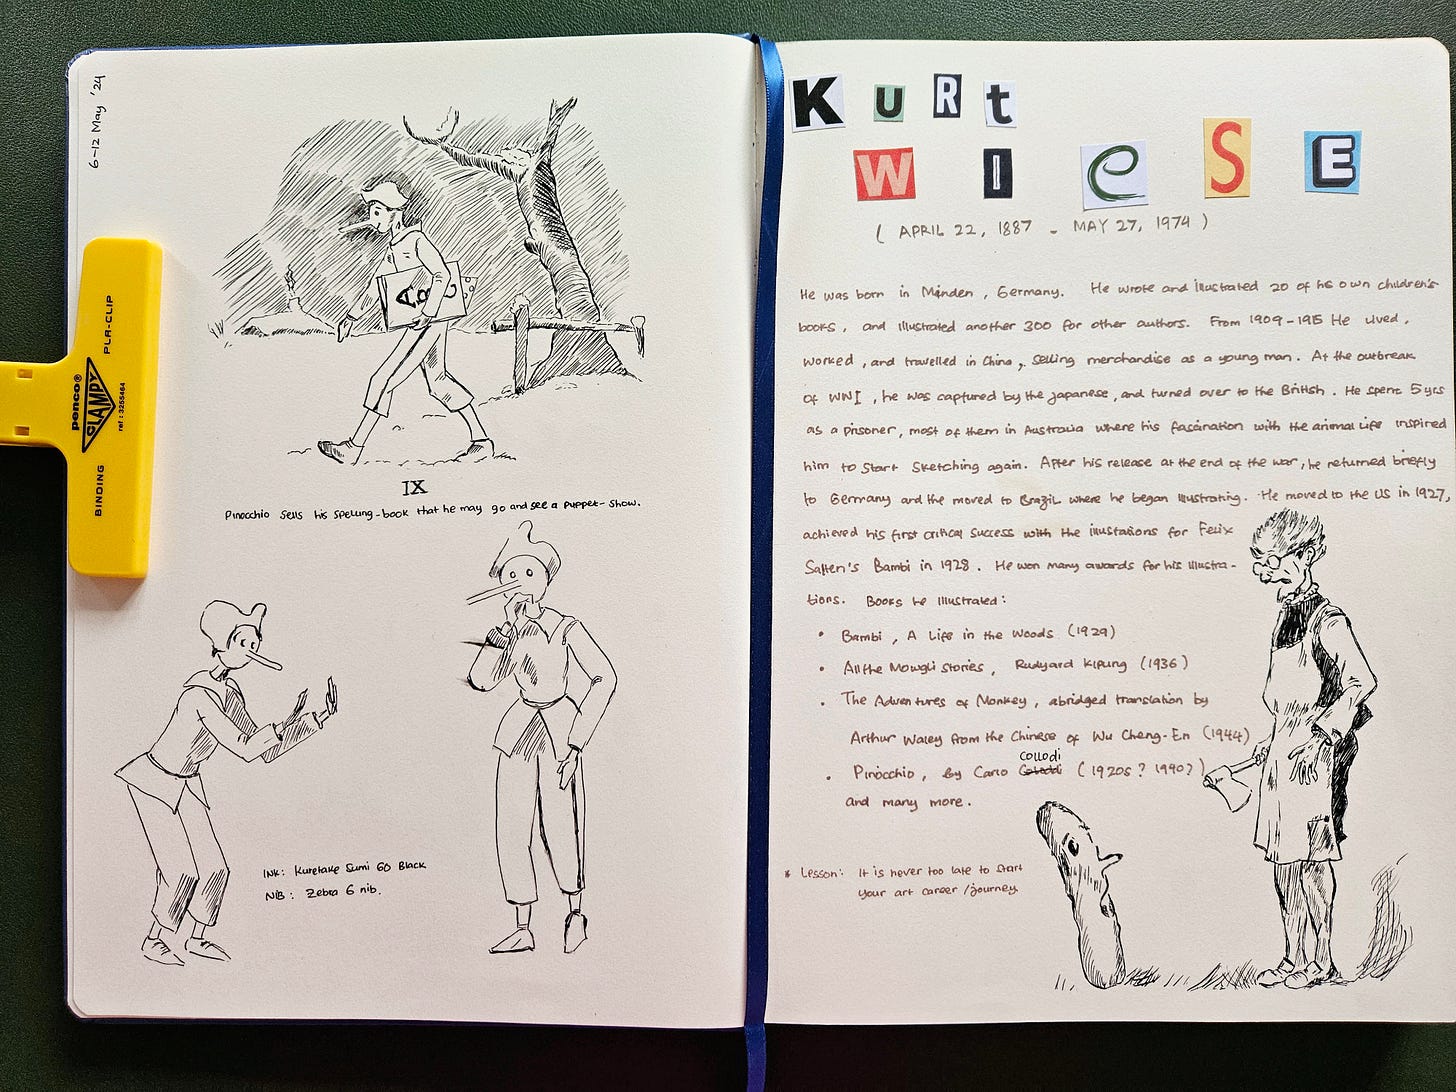 6-12 May '24
penco®
CLAMPY
PLA-CLIP
ref : 3255464
BINDING
A B
IX
Pinocchio sells his spelling-book that he may go and see a puppet-show.
INK: Kuretake Sumi 60 Black
NIB: Zebra G nib.
KuRt
WIeSE
( APRIL 22, 1887 - MAY 27, 1974 )
He was born in Minden, Germany. He wrote and illustrated 20 of his own children's
books, and illustrated another 300 for other authors. From 1909-1915 He lived,
worked, and travelled in China, selling merchandise as a young man. At the outbreak
of WWI, he was captured by the Japanese, and turned over to the British. He spent 5 yrs
as a prisoner, most of them in Australia where his fascination with the animal life inspired
him to start sketching again. After his release at the end of the war, he returned briefly
to Germany and the moved to Brazil where he began illustrating. He moved to the US in 1927,
achieved his first critical success with the illustations for Felix
Salten's Bambi in 1928. He won many awards for his illustra-
tions. Books he illustrated:
• Bambi, A Life in the Woods (1929)
• All the Mowgli stories, Rudyard Kipling (1936)
• The Adventures of Monkey, abridged translation by
Arthur Waley from the Chinese of Wu Cheng-En (1944)
• Pinocchio, by Carlo Collodi (1920s? 1990?)
and many more.
* Lesson: It is never too late to start
your art career/journey.